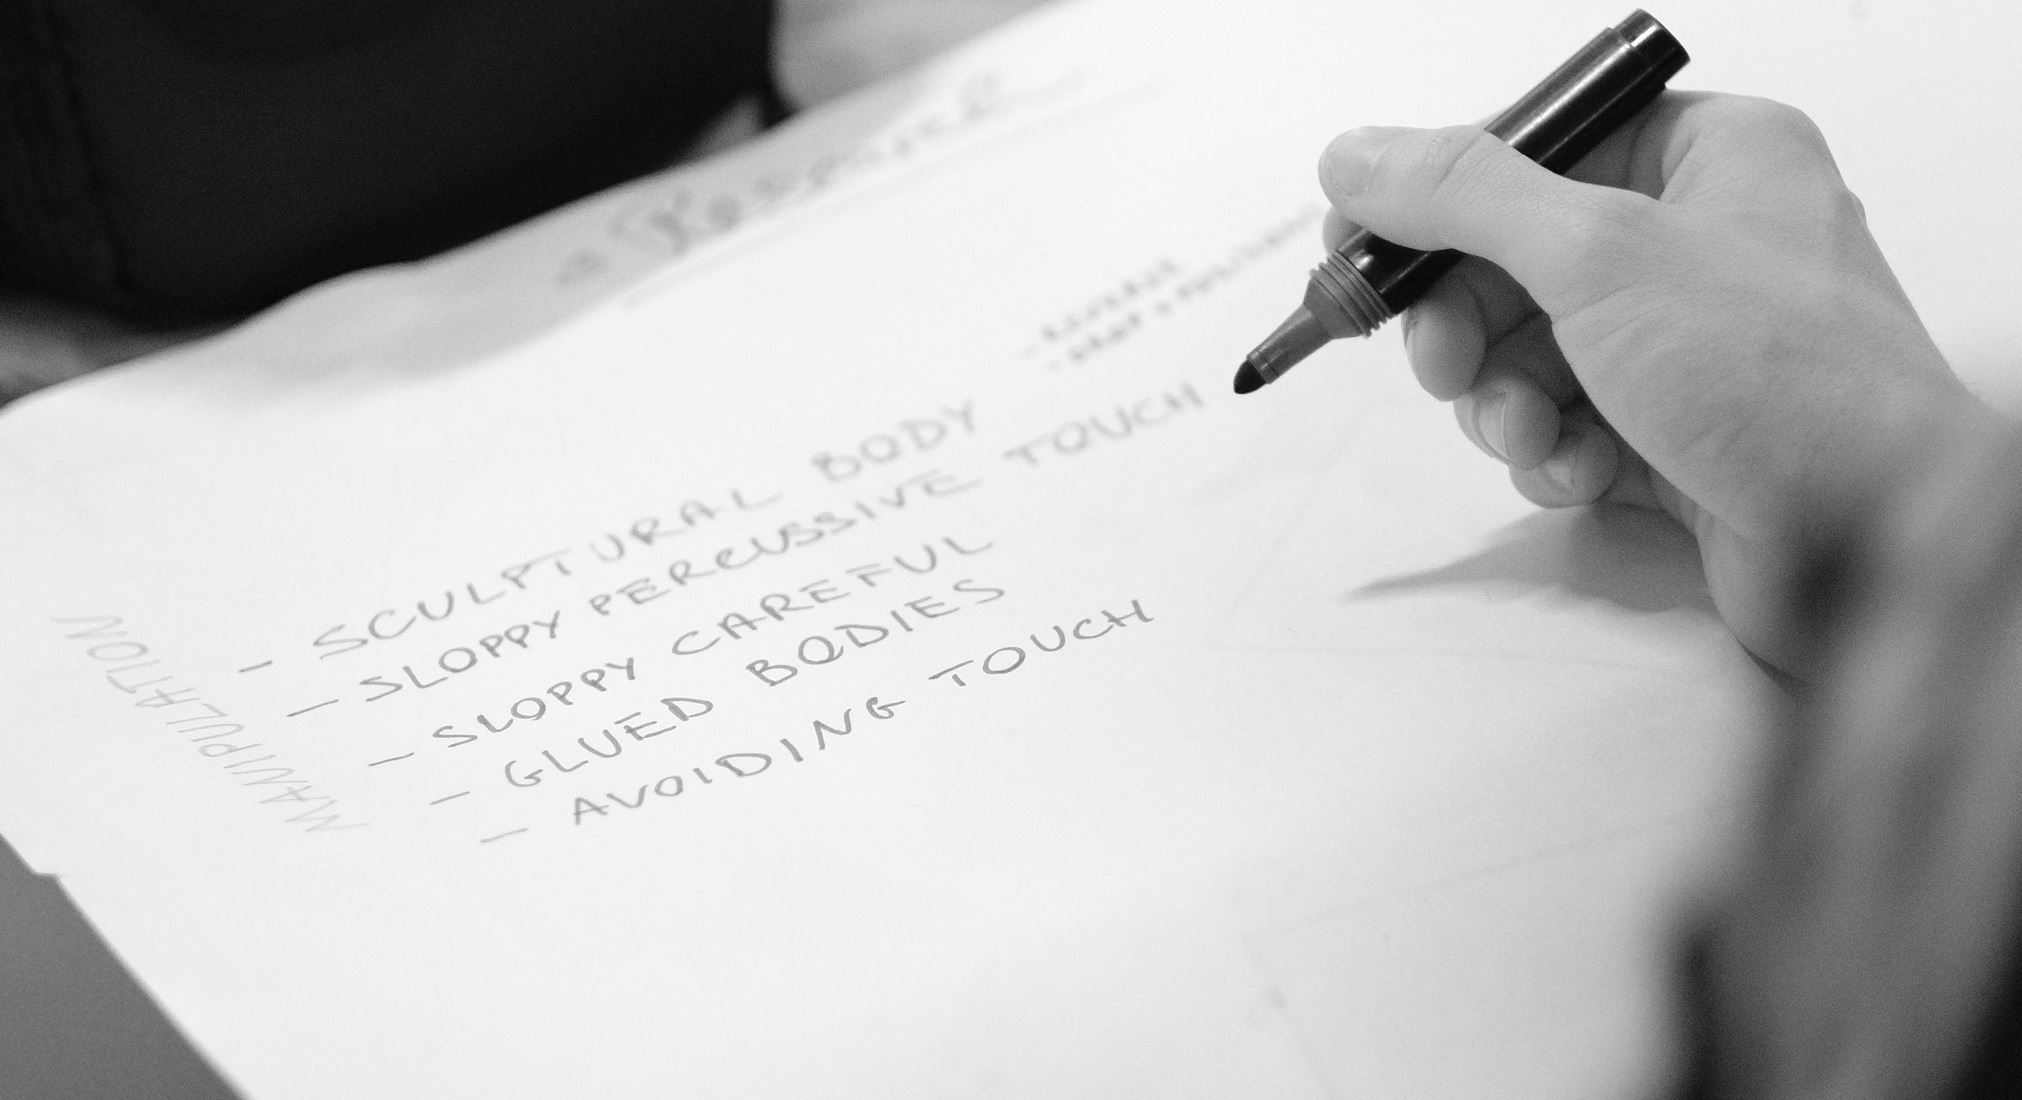 MANIPULATION
- SCULPTURAL BODY
- SLOPPY PERCUSSIVE TOUCH
- SLOPPY CAREFUL
- GLUED BODIES
- AVOIDING TOUCH